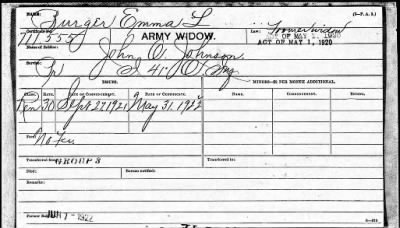 NAME: Burger Emma L (3-P. A. S.)
711555 ARMY WIDOW. Law: Former widow
ACT OF MAY 1, 1920
ACT OF MAY 1, 1920
Name of Soldier: John O. Johnson
Service: Pvt
ISSUES. MINORS—$6 PER MONTH ADDITIONAL.
CLASS. RATE. DATE OF COMMENCEMENT. DATE OF CERTIFICATE. Name. Commencement. Ending.
Ren 30 Sept 27 1921 May 31. 1922
Fees: No Fee
Transferred from GROUP 3 Transferred to:
Died: Bureau notified:
Remarks:
Former Roll JUN 7 - 1922